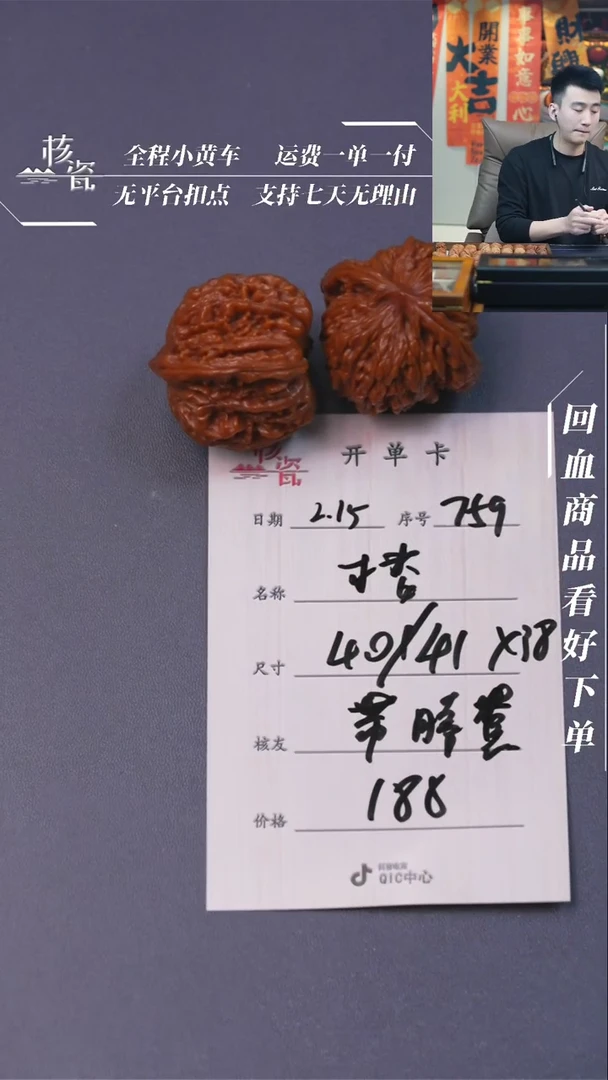 核瓷
全程小黄车 运费一单一付
无平台扣点 支持七天无理由
開業
大吉
大利
事事如意
心
财
興
回血商品看好下单
核瓷
开单卡
日期 2.15 序号 759
名称
尺寸 40/41 X38
核友
价格 188
QIC中心